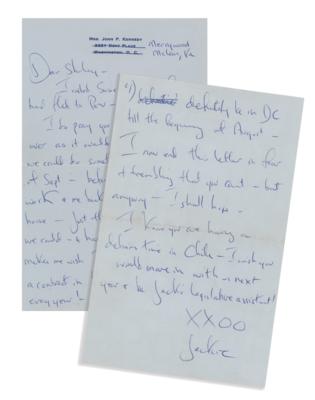 MRS. JOHN F. KENNEDY
3321 DENT PLACE
WASHINGTON, D. C.
Merrywood
McLean, Va
Dear Shirley –
I called
had fled to Peru –
I do pray you
ver as it would
we could be
of Sept – before
work & we
house – Just
we could – &
makes me wish
a contract in
every year!
definitely be in DC
till the beginning of August –
I now end this letter in fear
& trembling that you can't – but
anyway – I shall hope –
I know you are having a
delirious time in Chile – I wish you
would move in with us next
year & be Jack's legislative assistant!
XXOO
Jackie